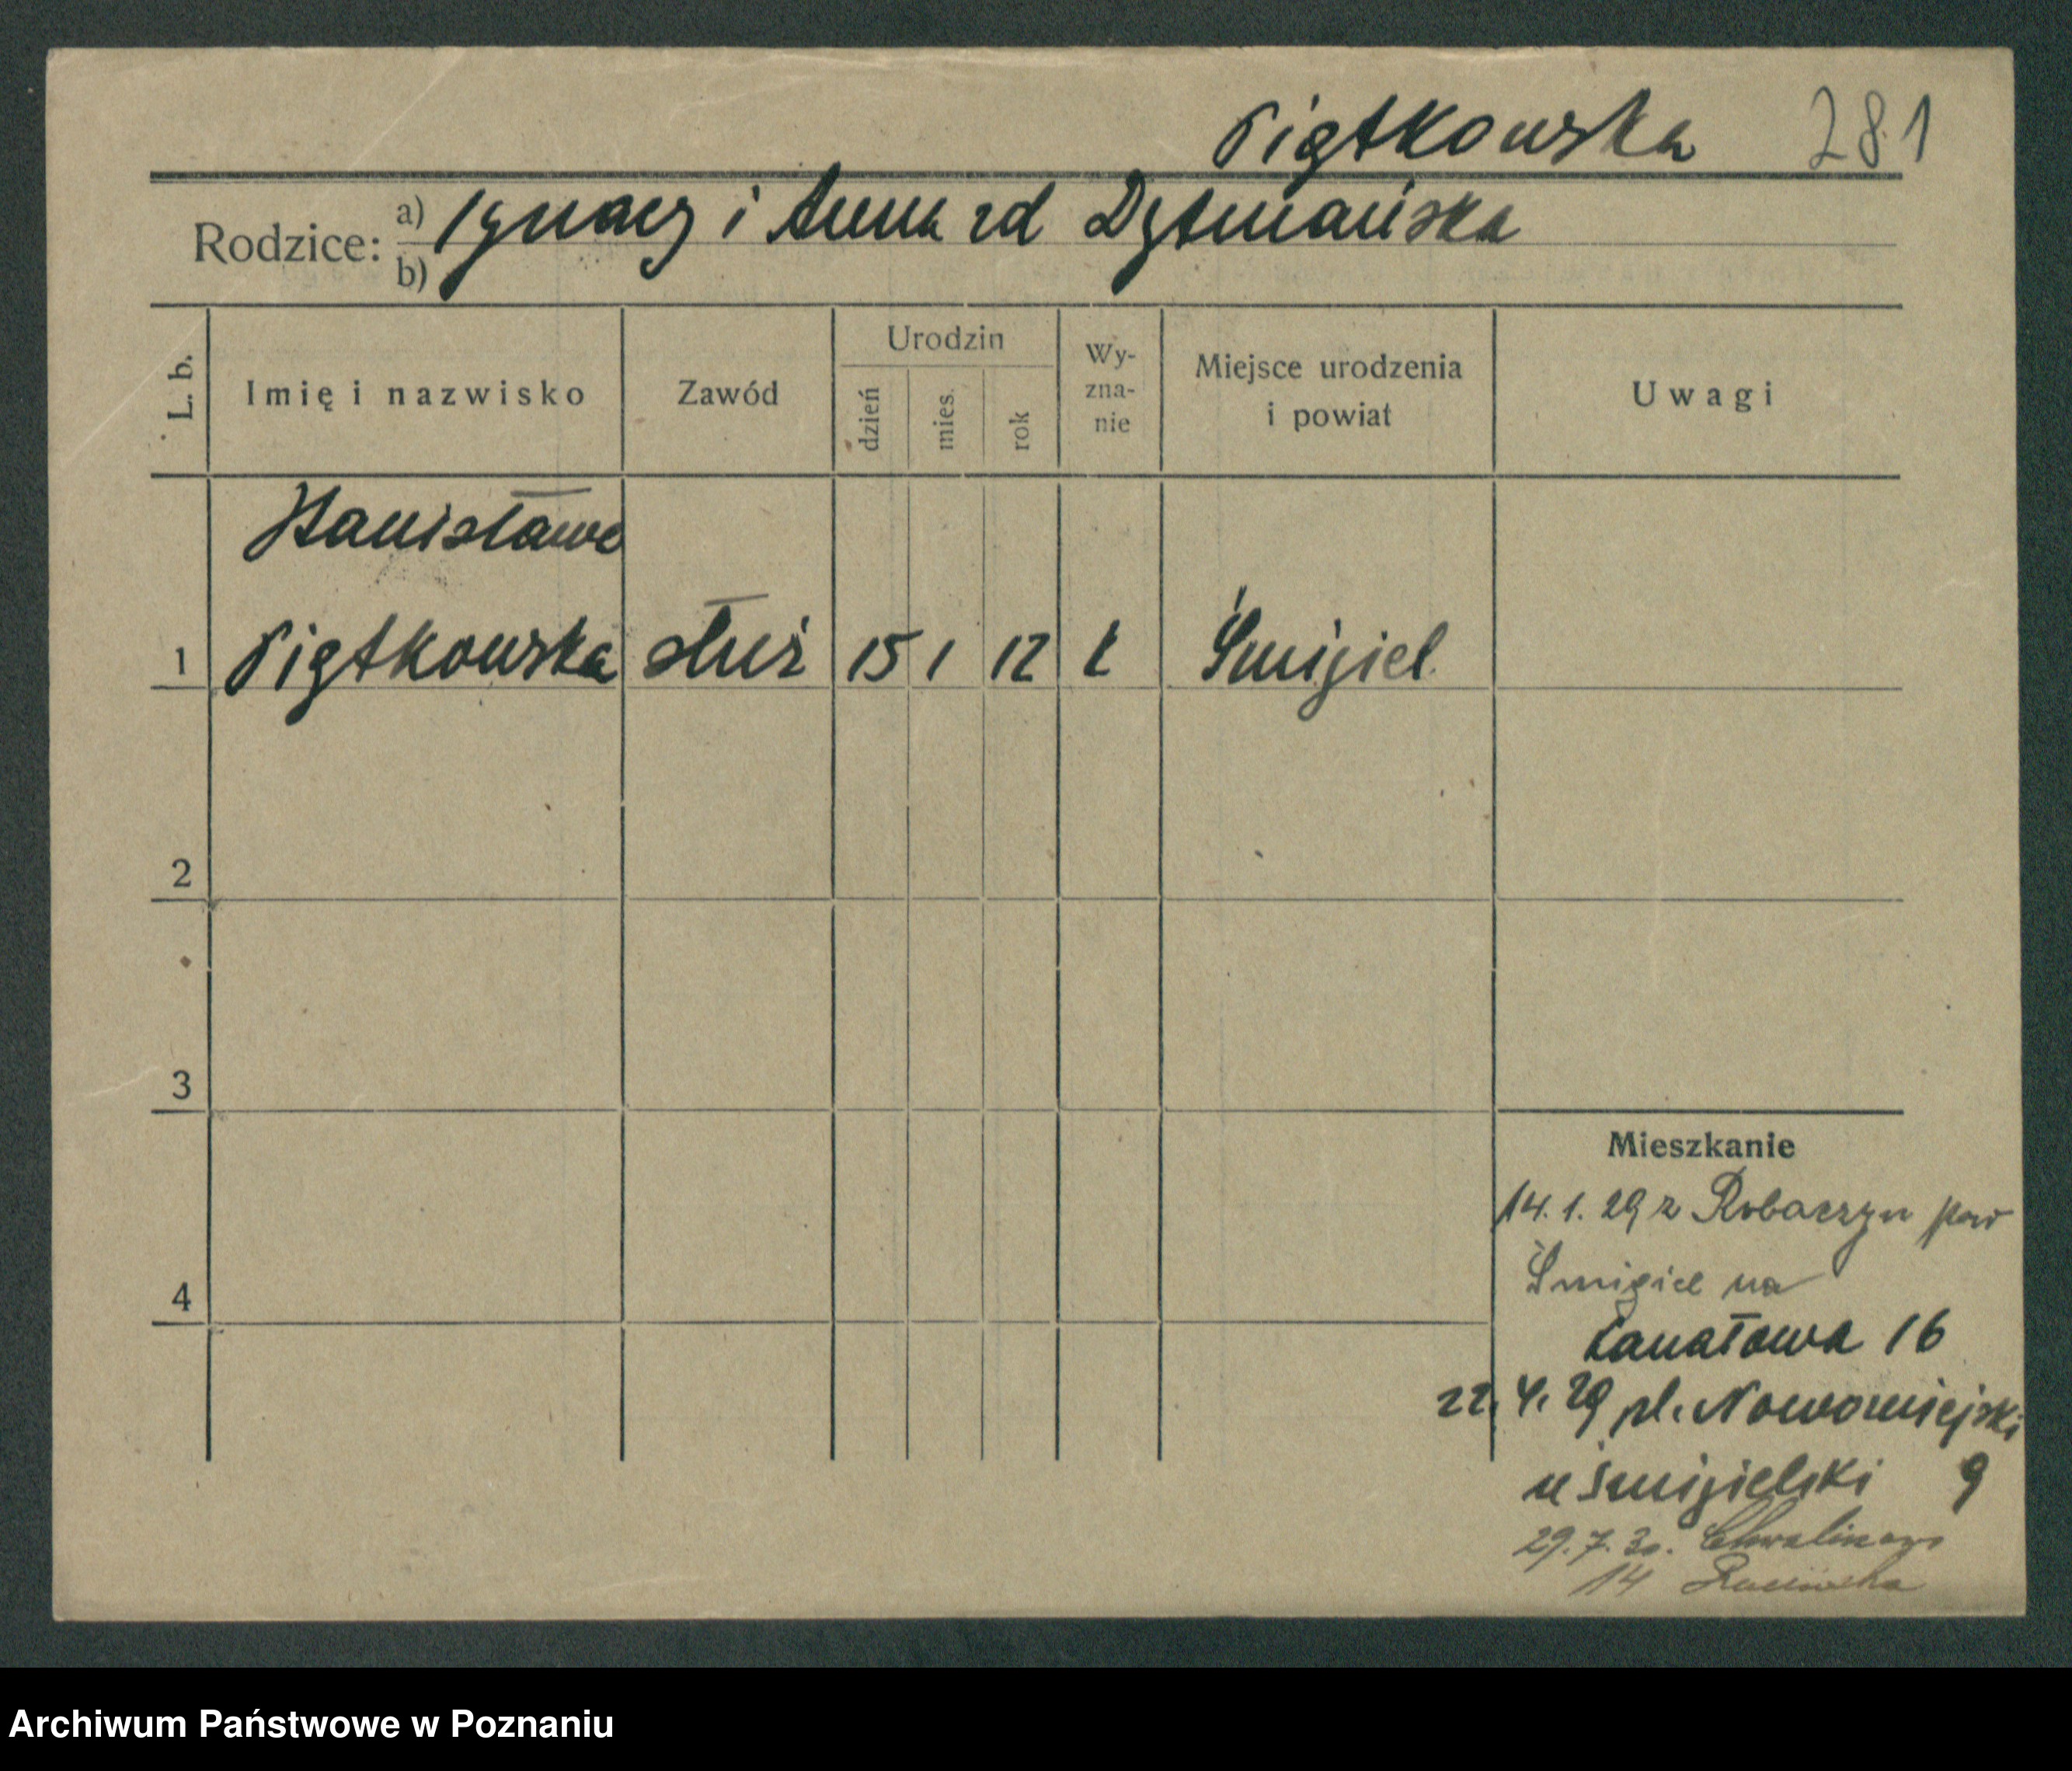 Piątkowska 281
Rodzice: a) Ignacy i Anna zd Dytmańska
b)
L. b.
Imię i nazwisko
Zawód
Urodzin
dzień
mies.
rok
Wy-
zna-
nie
Miejsce urodzenia
i powiat
Uwagi
Stanisława
1 Piątkowska służ 15 1 12 k Śmigiel
2
3
4
Mieszkanie
14.1.29 z Robaczyn pow
Śmigiel na
Kanałowa 16
22.4.29 pl. Nowomiejski
u Śmigielski 9
29.7.30.
14
Archiwum Państwowe w Poznaniu